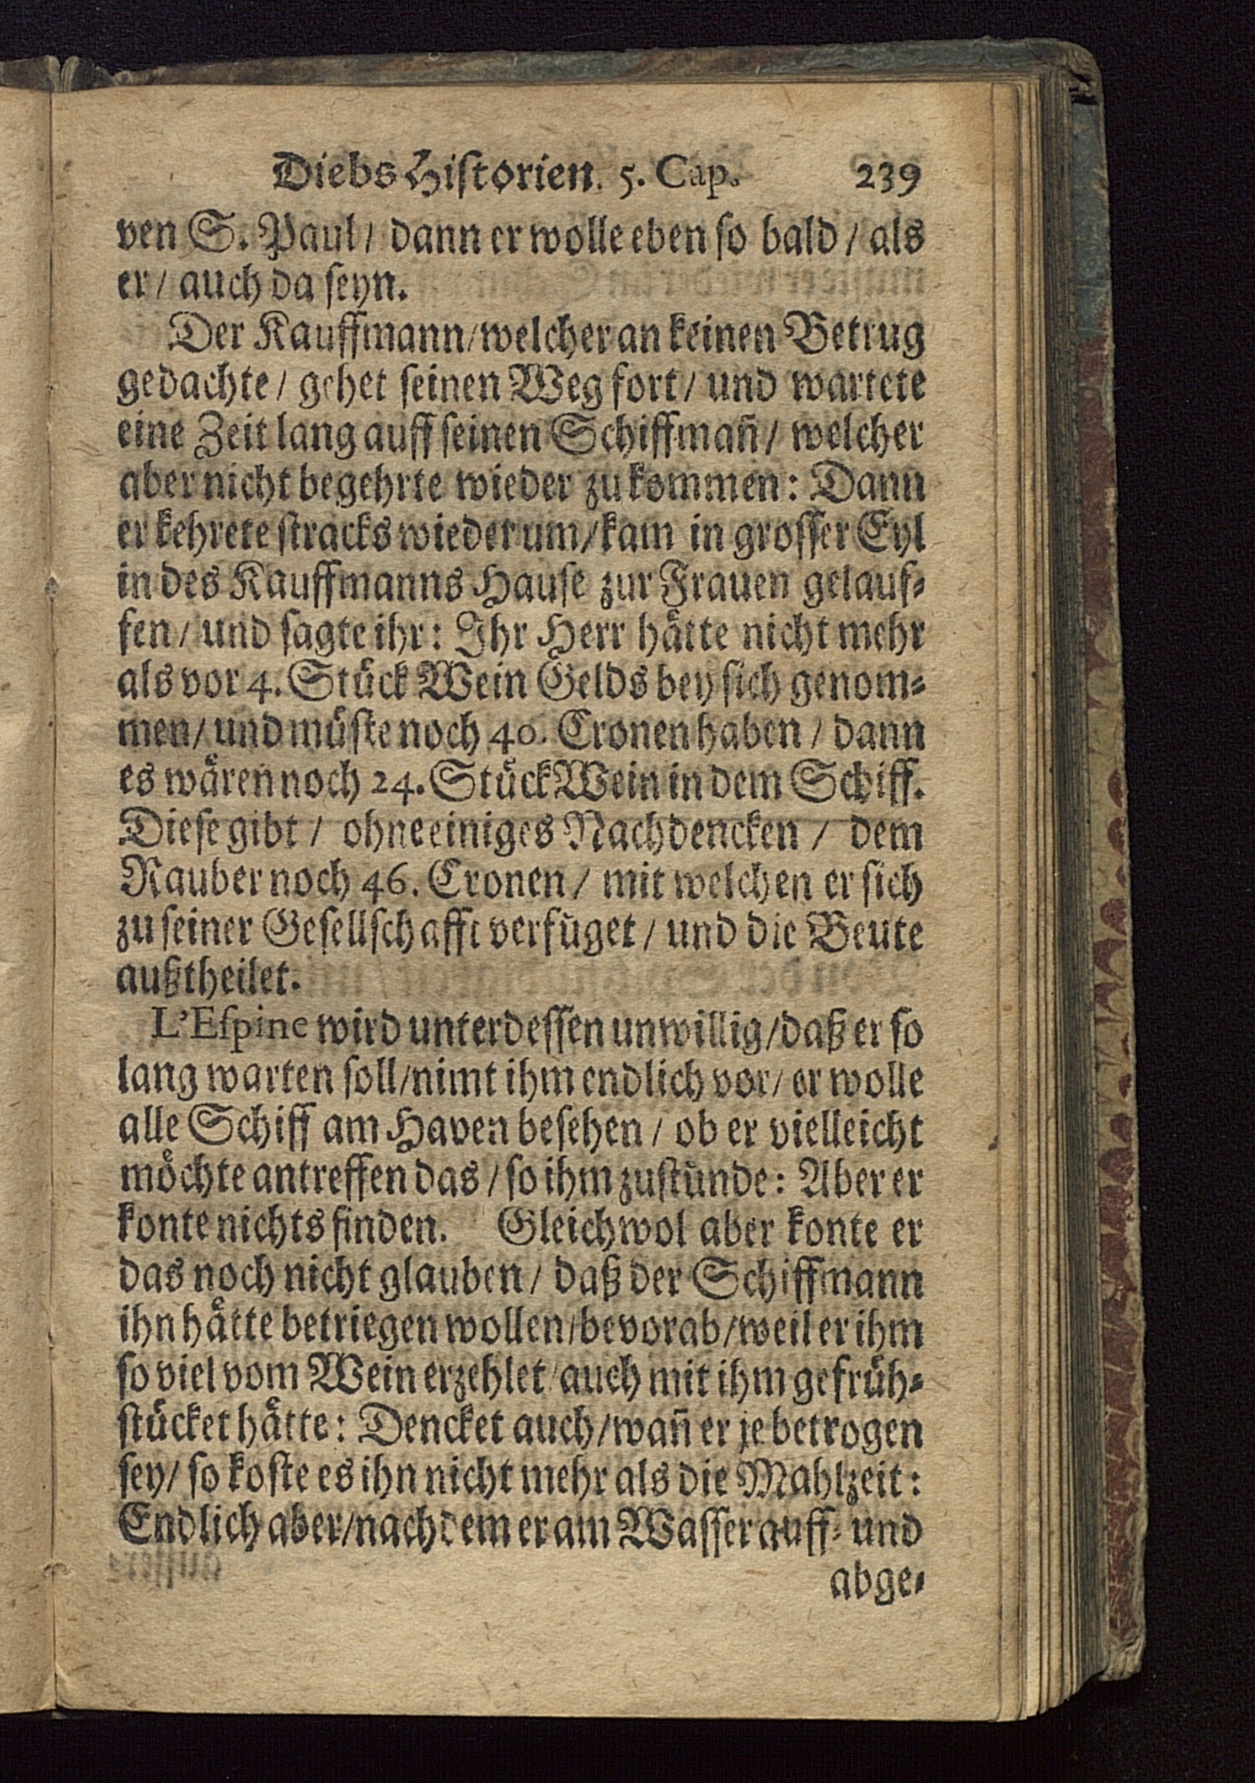 Diebs Historien. 5. Cap. 239
ven S. Paul / dann er wolle eben so bald / als
er / auch da seyn.
Der Kauffmann / welcher an keinen Betrug
gedachte / gehet seinen Weg fort / und wartete
eine Zeit lang auff seinen Schiffmañ / welcher
aber nicht begehrte wieder zu kommen: Dann
er kehrete stracks wieder um / kam in grosser Eyl
in des Kauffmanns Hause zur Frauen gelauf-
fen / und sagte ihr: Ihr Herr hätte nicht mehr
als vor 4. Stück Wein Gelds bey sich genom-
men / und müste noch 40. Cronen haben / dann
es wären noch 24. Stück Wein in dem Schiff.
Diese gibt / ohne einiges Nachdencken / dem
Rauber noch 46. Cronen / mit welchen er sich
zu seiner Gesellschafft verfüget / und die Beute
außtheilet.
L'Espine wird unterdessen unwillig / daß er so
lang warten soll / nimt ihm endlich vor / er wolle
alle Schiff am Haven besehen / ob er vielleicht
möchte antreffen das / so ihm zustünde: Aber er
konte nichts finden. Gleichwol aber konte er
das noch nicht glauben / daß der Schiffmann
ihn hätte betriegen wollen / bevorab / weil er ihm
so viel vom Wein erzehlet / auch mit ihm gefrüh-
stücket hätte: Dencket auch / wañ er je betrogen
sey / so koste es ihn nicht mehr als die Mahlzeit:
Endlich aber / nachdem er am Wasser auff- und
abge-